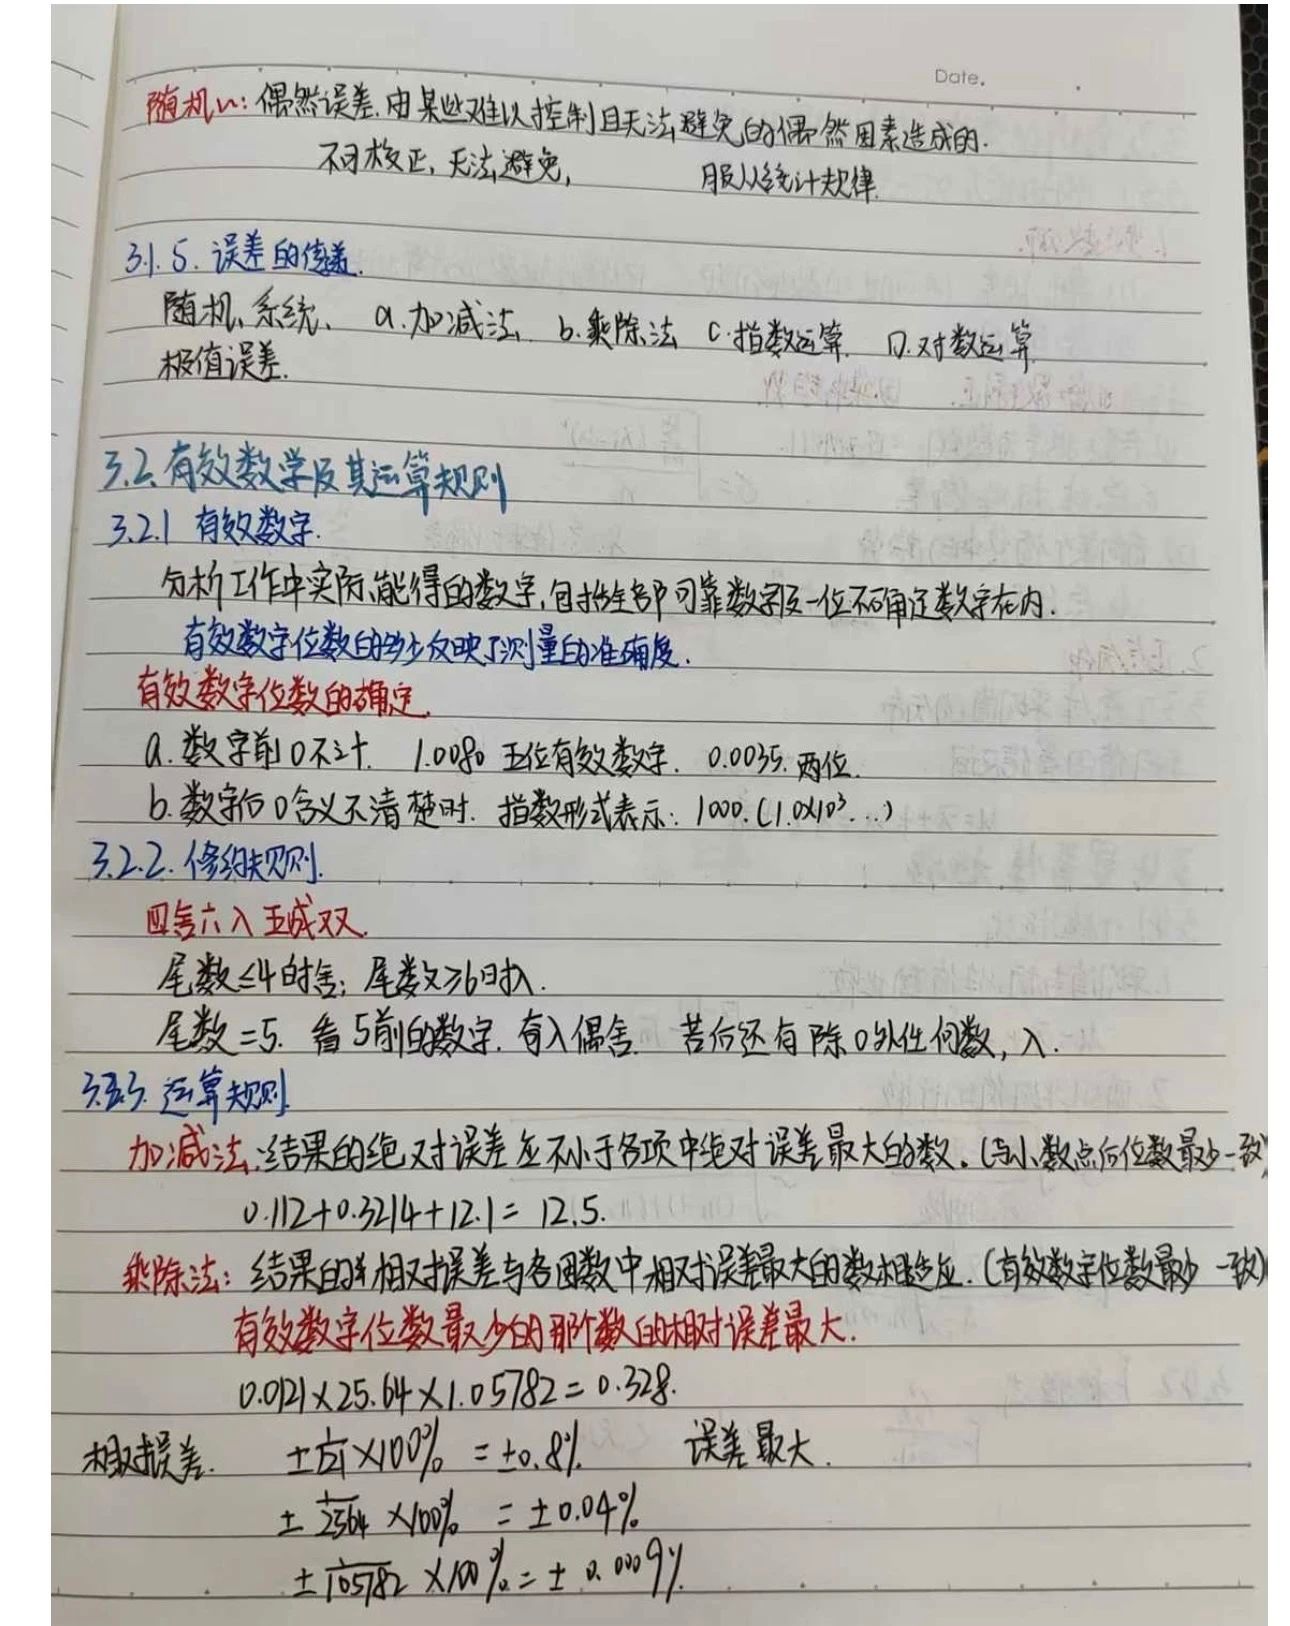 Date.
随机〃: 偶然误差.由某些难以控制且无法避免的偶然因素造成的.
不可校正,无法避免, 服从统计规律.
3.1.5. 误差的传递.
随机、系统、 a.加减法. b.乘除法 C.指数运算. D.对数运算.
极值误差.
3.2.有效数学及其运算规则
3.2.1 有效数字.
分析工作中实际能得的数字,包括全部可靠数字及一位不确定数字在内.
有效数字位数的多少反映了测量的准确度.
有效数字位数的确定.
a.数字前0不计. 1.0080 五位有效数字. 0.0035.两位.
b.数字后0含义不清楚时. 指数形式表示: 1000.(1.0×10³...)
3.2.2.修约规则.
四舍六入五成双.
尾数≤4时舍; 尾数≥6时入.
尾数=5. 看5前的数字. 奇入偶舍. 若后还有除0外任何数,入.
3.2.3.运算规则.
加减法:结果的绝对误差应不小于各项中绝对误差最大的数。(与小数点后位数最少一致)
0.112+0.3214+12.1= 12.5.
乘除法: 结果的相对误差与各因数中相对误差最大的数相适应.(有效数字位数最少一致)
有效数字位数最少的那个数的相对误差最大.
0.0121×25.64×1.05782=0.328.
相对误差. ±1/121×100% =±0.8% 误差最大.
±1/2564 ×100% = ±0.04%
±1/105782 ×100%=± 0.0009%